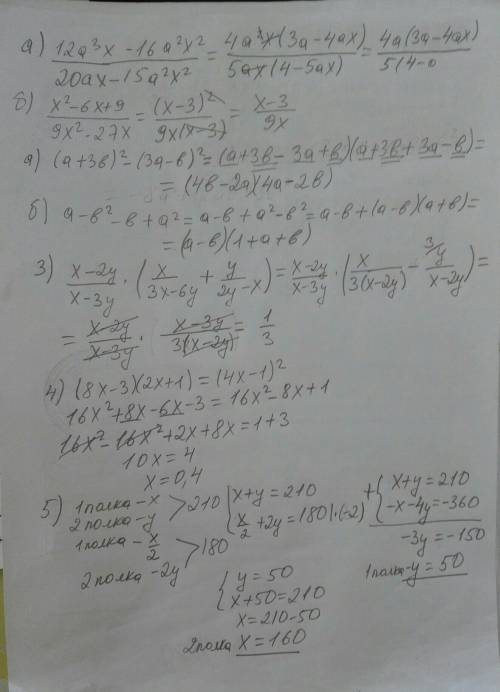 а) (12a³x - 16a²x²)/(20ax - 15a²x²) = (4a²x(3a-4ax))/(5ax(4-5ax)) = (4a(3a-4ax))/(5(4-0
б) (x²-6x+9)/(9x²-27x) = (x-3)²/(9x(x-3)) = (x-3)/(9x)
а) (a+3в)²-(3a-в)²=(a+3в-3a+в)(a+3в+3a-в)=
=(4в-2a)(4a-2в)
б) a-в²-в+a²=a-в+a²-в²=a-в+(a-в)(a+в)=
=(a-в)(1+a+в)
3) (x-2y)/(x-3y)·(x/(3x-6y)+y/(2y-x))=(x-2y)/(x-3y)·(x/(3(x-2y))-3/y/(x-2y))=
=(x-2y)/(x-3y)·(x-3y)/(3(x-2y))=1/3
4) (8x-3)(2x+1)=(4x-1)²
16x²+8x-6x-3=16x²-8x+1
16x²-16x²+2x+8x=1+3
10x=4
x=0,4
5) 1полка-x
2полка-y >210
{x+y=210
x/2+2y=180|·(-2)
+{x+y=210
-x-4y=-360
-3y=-150
1полка-y=50
1полка-x/2
2полка-2y >180
{y=50
x+50=210
x=210-50
2полка x=160